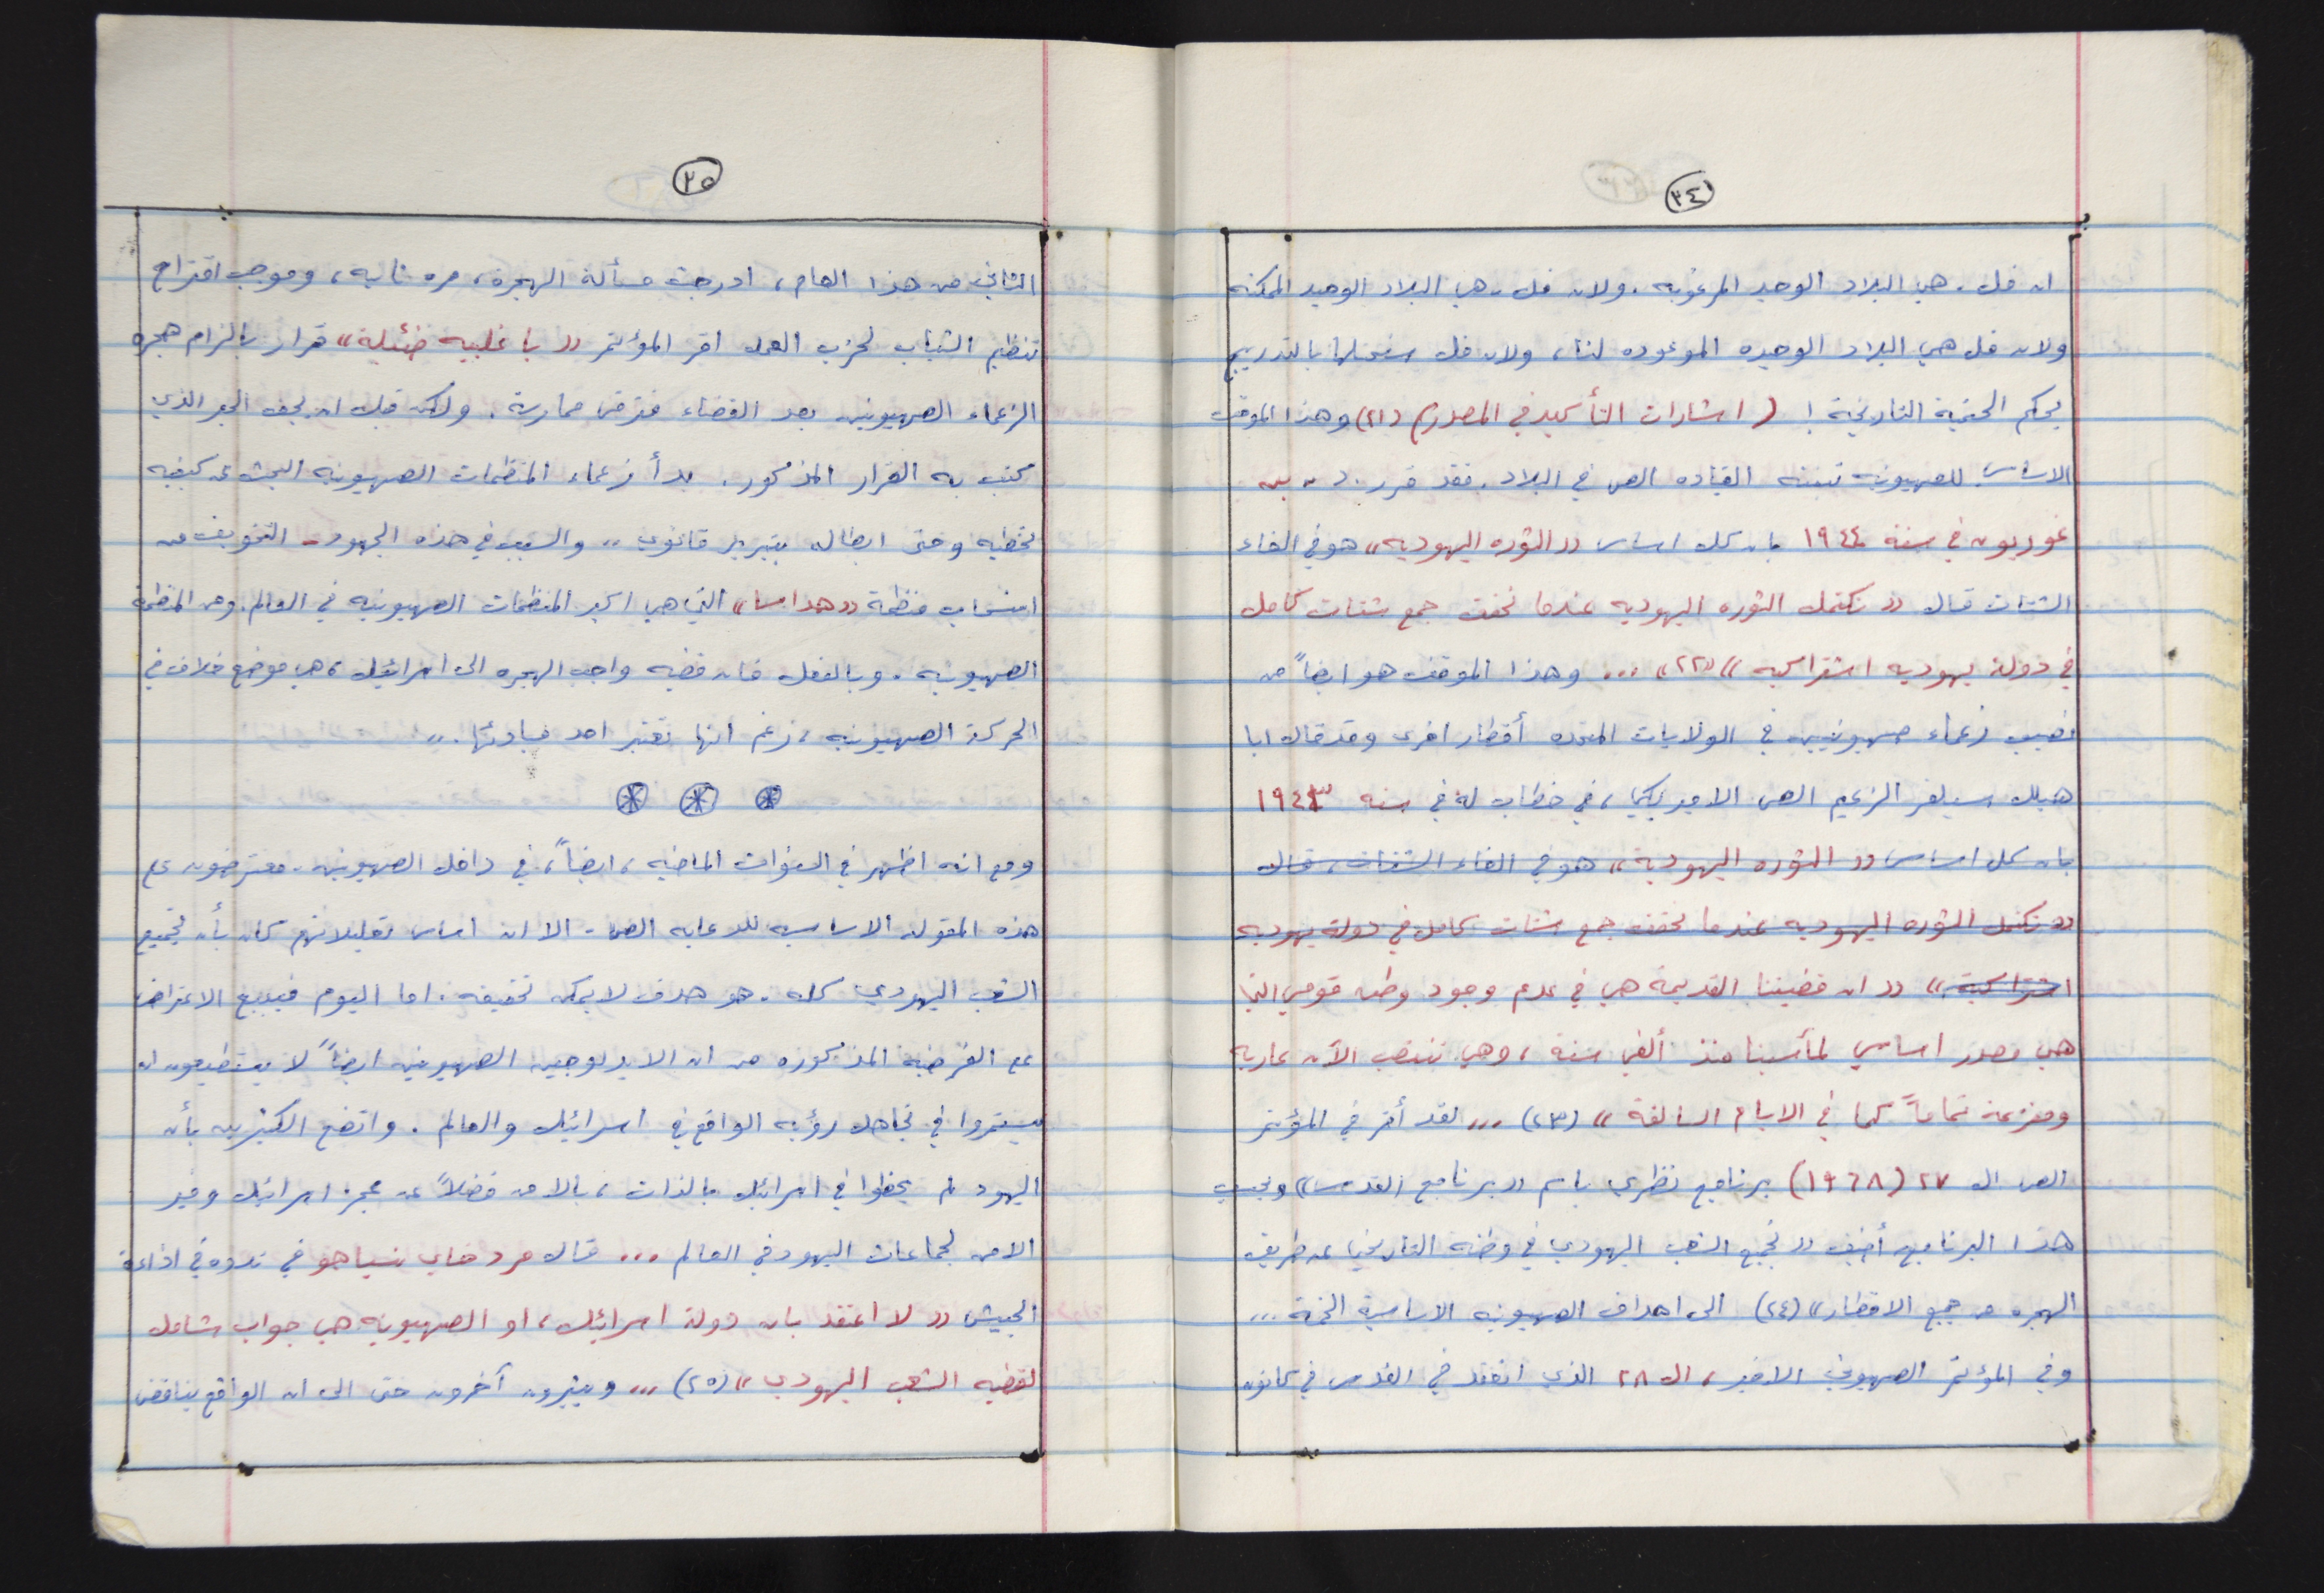 ٣٤
ان فل. هي البلاد الوحيد المرغوبه. ولان فل. هي البلاد الوحيد الممكنه
ولان فل هي البلاد الوحيده الموعوده لنا، ولان فل سنصلها بالتدريج
بحكم الحتمية التاريخية! (اشارات التأكيد في المصدر) (٢١) وهذا الموقف
الاساس للصهيونيه تبنته القياده الصه في البلاد. فقد قرر. د. بن
غوريون في سنة ١٩٤٤ بان كل اساس ((الثوره اليهوديه)) هو في الغاء
الشتات قال ((تكتمل الثوره اليهوديه عندما نحقق جمع شتات كامل
في دولة يهوديه اشتراكيه)) ((٢٢)) ... وهذا الموقف هو ايضاً من
نصيب زعماء صهيونيين في الولايات المتحده أقطار اخرى وقد قال ابا
هيلل سيلفر الزعيم الصه الامريكي، في خطاب له في سنه ١٩٤٣
بان كل اساس ((الثوره اليهودية)) هو في الغاء الشتات، قال
((تكتمل الثوره اليهوديه عندما نحقق جمع شتات كامل في دولة يهوديه
اشتراكية)) ((ان قضيتنا القديمة هي في عدم وجود وطن قومي التي
هي مصدر اساسي لمآسينا منذ ألفي سنة، وهي تنتصب الآن عاريه
ومفزعة تماماً كما في الايام السالفة)) (٢٣) ... لقد أقر في المؤتمر
الصه الـ ٢٧ (١٩٦٨) برنامج نظري باسم ((برنامج القدس)) وبحسب
هذا البرنامج أضيف ((تجميع الشعب اليهودي في وطنه التاريخي عن طريق
الهجره من جميع الاقطار)) (٢٤) الى اهداف الصهيونيه الاساسية الخمة ...
وفي المؤتمر الصهيوني الاخير، الـ ٢٨ الذي انعقد في القدس في كانون
٢٥
الثاني من هذا العام، ادرجت مسألة الهجرة، مره ثانيه، وموجب اقتراح
تنظيم الشباب لحزب العمل اقر المؤتمر ((باغلبيه ضئيلة)) قرار بالزام هجره
الزعماء الصهيونيين بعد انقضاء فترض ممارسة. ولكن قبل ان يجف الحبر الذي
كتب به القرار المذكور. بدأ زعماء المنظمات الصهيونيه البحث عن كيفيه
تخطيه وحتى ابطال بتبرير قانوني .. والسبب في هذه الجهود - التخويف من
انسحاب منظمة ((هداسا)) التي هي اكبر المنظمات الصهيونيه في العالم. ومن المنظمة
الصهيونيه. وبالفعل فان قضيه واجب الهجره الى اسرائيل، هي موضع خلاف في
الحركة الصهيونيه، رغم انها تعتبر احد مبادئها. ..
ومع انه اظهر في السنوات الماضيه، ايضاً، في داخل الصهيونيه. معترضون على
هذه المقوله الاساسيه للدعايه الصه. الا ان اساس تعليلاتهم كان بأن تجميع
الشعب اليهودي كله. هو هدف لا يمكن تحقيقه. اما اليوم فينبع الاعتراض
على الفرضية المذكوره من ان الايدلوجيين الصهيونيين ايضاً لا يستطيعون ان
يستمروا في تجاهل رؤيه الواقع في اسرائيل والعالم. واتضح الكثيرين بأن
اليهود لم يحظوا في اسرائيل بالذات، بالامن فضلاً عن عجز اسرائيل وفير
الامن لجماعات اليهود في العالم ... قال مردخاي نسياهو في ندوه في اذاعة
الجيش ((لا اعتقد بان دولة اسرائيل، او الصهيونيه هي جواب شامل
لقضيه الشعب اليهودي)) (٢٥) ... ويشيرون آخرون حتى الى ان الواقع يناقض